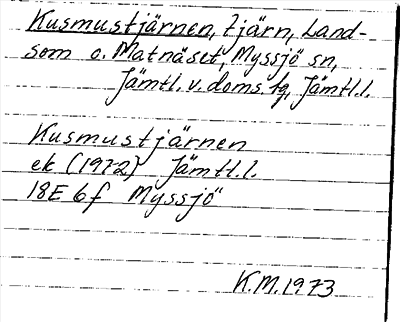 Kusmustjärnen, tjärn, Land-
som o. Matnäset, Myssjö sn,
Jämtl. v. doms. tg, Jämtl.l.
Kusmustjärnen
ek (1972) Jämtl.l.
18E 6f Myssjö
K.M. 1973